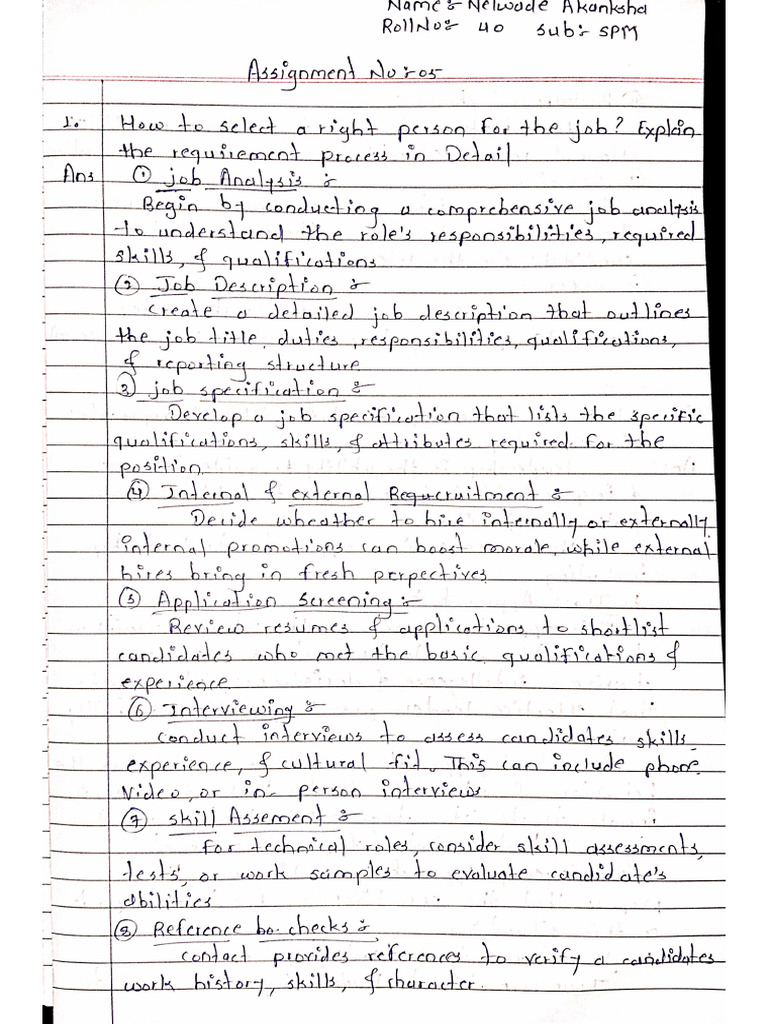 Name:- Nelwade Akanksha
Roll No:- 40 Sub:- SPM
Assignment No:-05
1. How to select a right person for the job? Explain
the requirement process in Detail
Ans ① job Analysis :-
Begin by conducting a comprehensive job analysis
to understand the role's responsibilities, required
skills, & qualifications
② Job Description :-
Create a detailed job description that outlines
the job title, duties, responsibilities, qualifications,
& reporting structure
③ job specification :-
Develop a job specification that lists the specific
qualifications, skills, & attributes required for the
position.
④ Internal & external Requcruitment :-
Decide wheather to hire internally or externally.
internal promotions can boost morale, while external
hires bring in fresh perpectives
⑤ Application Screening :-
Review resumes & applications to shortlist
candidates who met the basic qualifications &
experience
⑥ Interviewing :-
Conduct interviews to assess candidates skills,
experience, & cultural fit. This can include phone,
Video, or in- person interviews
⑦ skill Assement :-
For technical roles, consider skill assessments,
tests, or work samples to evaluate candidate's
abilities
⑧ Reference checks :-
contact provides references to verify a candidates
work history, skills, & character.